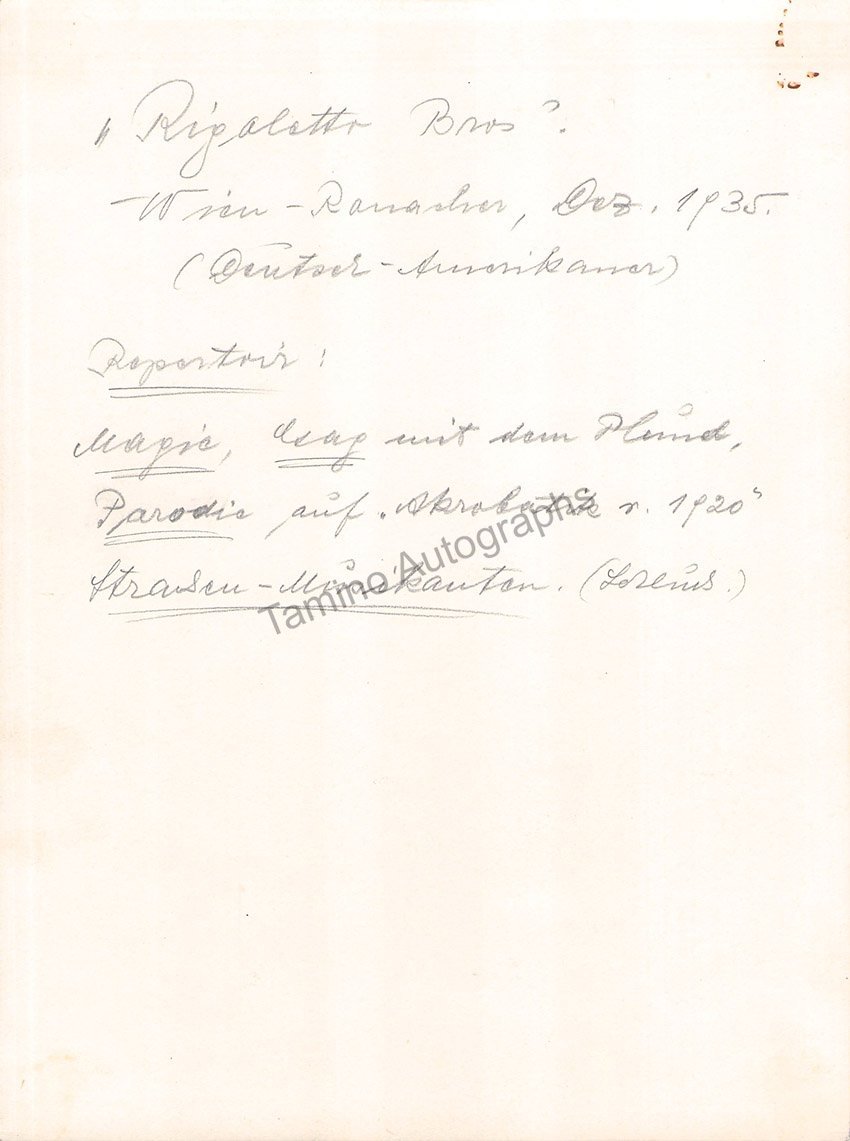 „Rigoletto Bros”.
Wien - Ronacher, Dez. 1935.
(Deutsch-Amerikaner)
Repertoir:
Magie, mit dem Hund,
Parodie auf „Akrobatik v. 1920“
Strassen-Musikanten.
Tamino Autographs